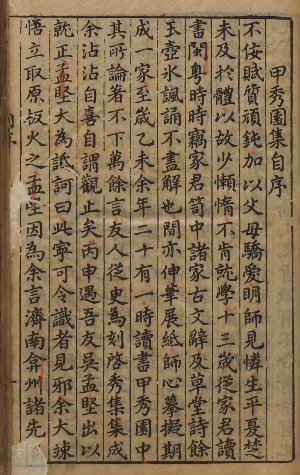 甲秀園集自序
不佞賦質頑鈍加以父母驕愛明師見憐生平憂楚
未及於體以故少懶惰不肯就學十三歲從家君讀
書閩粵時時竊家君笥中諸家古文辭及草堂詩餘
玉壺冰諷誦不盡解也間亦伸筆展紙師心摹擬期
成一家至歲乙未余年二十有一時讀書甲秀園中
其所論著不下萬餘言友人從臾為刻啓秀集集成
余沾沾自喜自謂觀止矣丙申遇吾友吳孟堅出以
就正孟堅大為詆訶曰此寧可令識者見邪余大竦
悟立取原板火之孟堅因為余言濟南弇州諸先